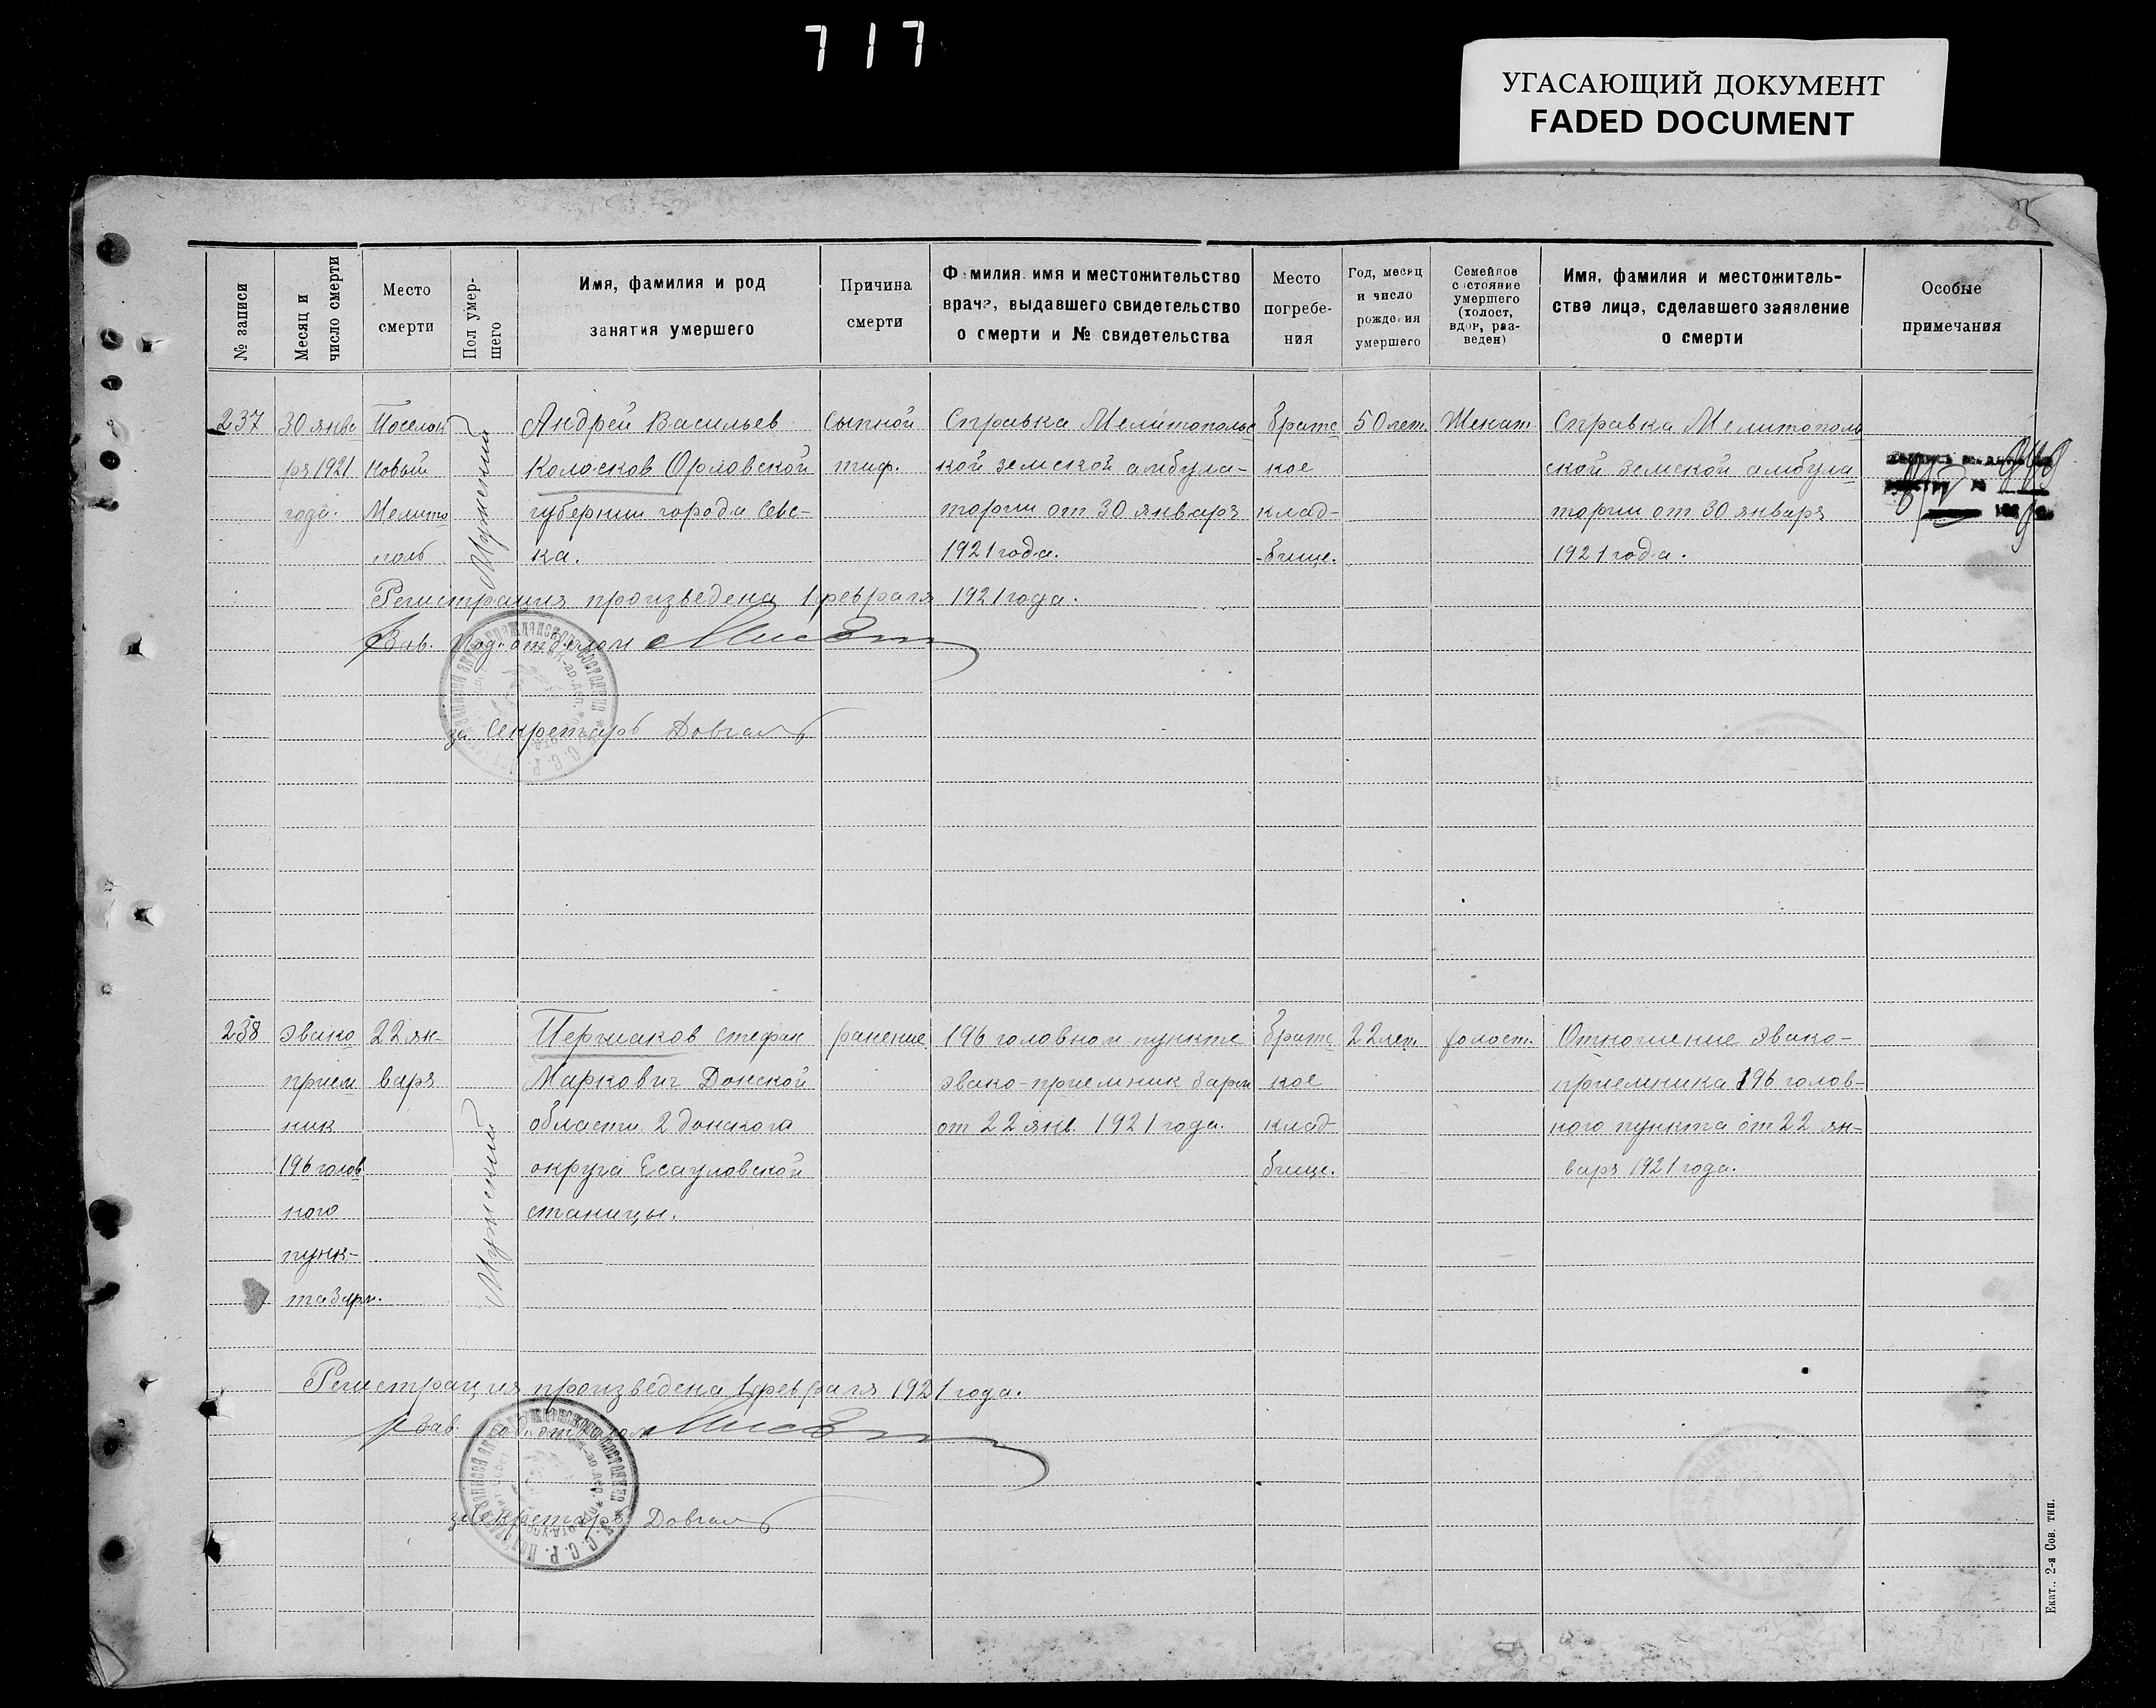 717
УГАСАЮЩИЙ ДОКУМЕНТ
FADED DOCUMENT
№ записи
Месяц и
число смерти
Место
смерти
Пол умер-
шего
Имя, фамилия и род
занятия умершего
Причина
смерти
Фамилия, имя и местожительство
врача, выдавшего свидетельство
о смерти и № свидетельства
Место
погребе-
ния
Год, месяц
и число
рождения
умершего
Семейное
состояние
умершего
(холост,
вдов, раз-
веден)
Имя, фамилия и местожитель-
ства лица, сделавшего заявление
о смерти
Особые
примечания
237
30 янва
ря 1921
года.
Поселок
Новый
Мелито
поль
Мужской
Андрей Васильев
Колосков Орловской
губернии города Севс-
ка.
Сыпной
тиф.
Справка Мелитопольс
кой земской амбула-
тории от 30 января
1921 года.
братс
кое
клад-
-бище.
50 лет.
Женат
Справка Мелитополь
ской земской амбула
тории от 30 января
1921 года.
Регистрация произведена 1 февраля 1921 года.
Зав. Подотделом
за Секретарь Довгаль
238
эвако
прием
ник
196 голов
ного
пунк-
та 3 арм.
22 ян-
варя
Мужской
Першаков Стефан
Маркович Донской
области 2 донского
округа Есауловской
станицы.
ранение
196 головном пункте
эвако-приемник 3 арм
от 22 янв. 1921 года.
братс
кое
клад
бище.
22 лет
холост.
Отношение эвако-
приемника 196 голов-
ного пункта от 22 ян-
варя 1921 года.
Регистрация произведена 1 февраля 1921 года.
Зав. Подотделом
за Секретарь Довгаль
Екат., 2-я Сов. тип.